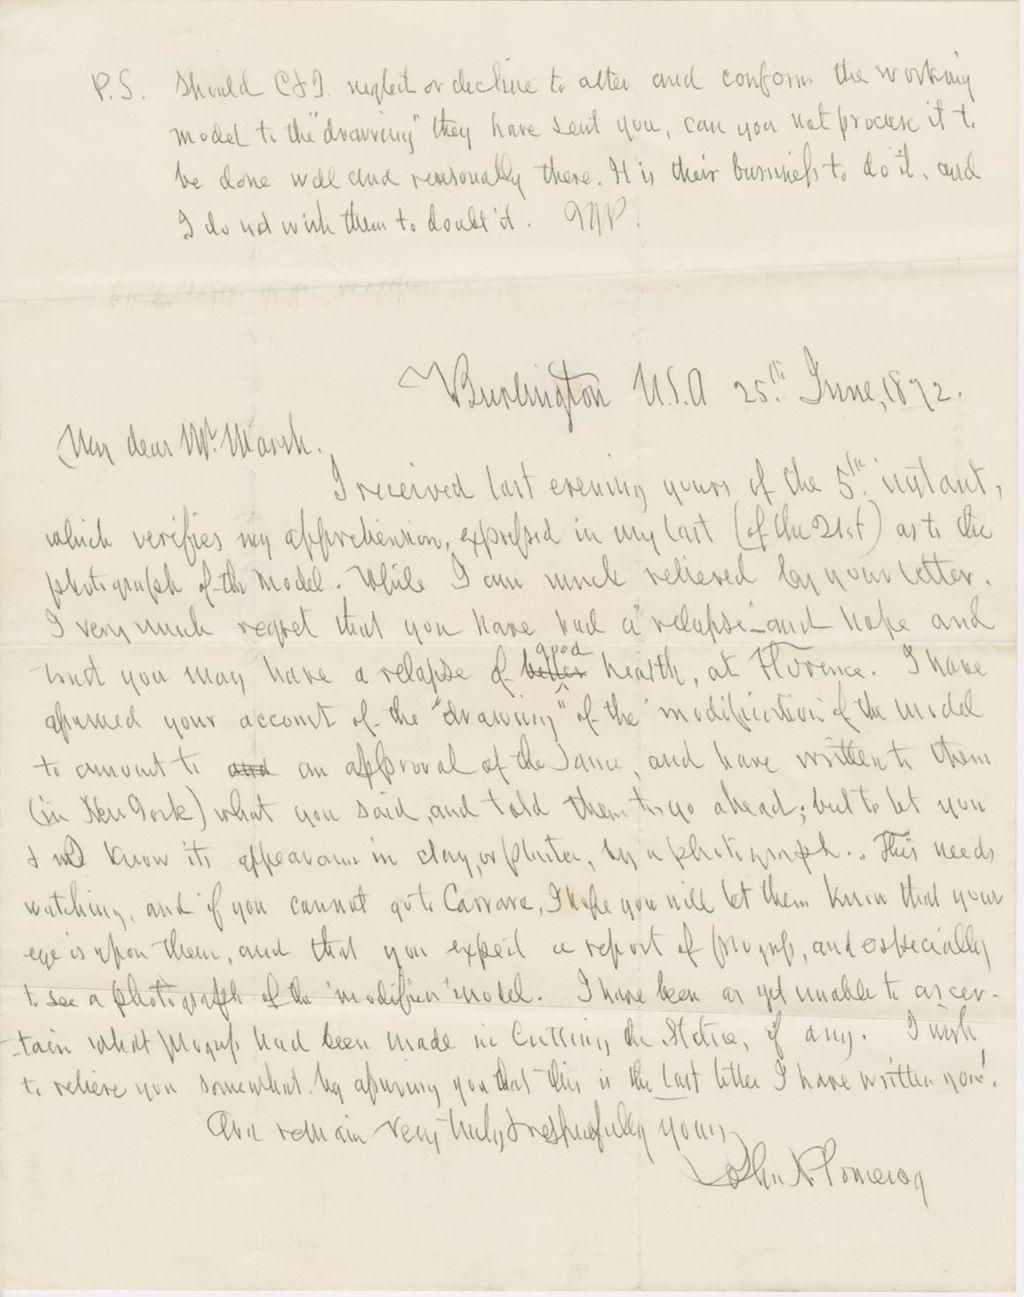 P.S. Should C&I. neglect or decline to alter and conform the working
model to the "drawing" they have sent you, can you not procure it to
be done well and reasonally there. It is their bussiness to do it, and
I do not wish them to doubt it. JNP.
Burlington U.S.A 25th June, 1872.
My dear Mr. Marsh.
I received last evening yours of the 5th instant,
which verifies my apprehension, expressed in my last (of the 21st) as to the
photograph of the model. While I am much relieved by your letter.
I very much regret that you have had a "relapse" and hope and
trust you may have a relapse of better good health, at Florence. I have
assumed your account of the "drawing" of the 'modification' of the model
to amount to and an approval of the same, and have written to them
(in New York) what you said, and told them to go ahead; but to let you
& me know its appearance in clay, or plaster, by a photograph.. This needs
watching, and if you cannot go to Carrara, I hope you will let them know that your
eye is upon them, and that you expect a report of progress, and especially
to see a photograph of the 'modified' model. I have been as yet unable to ascer-
-tain what progress had been made in Cutting the Statue, if any. I wish
to relieve you somewhat by assuring you that this is the last letter I have written you!
And remain very truly & respectfully yours,
John N. Pomeroy